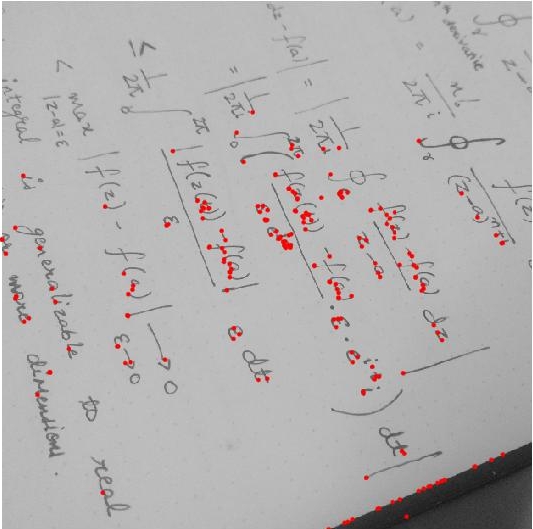 derivative
(a) = n! / 2πi ∮γ f(z) / (z-a)ⁿ
dz - f(a)| = | 1/2πi ∮ (f(z) - f(a)) / (z-a) dz |
= | 1/2πi ∫₀²π ( (f(z(t)) - f(a)) / ε · ε · e^{it} i ) dt |
≤ 1/2π ∫₀²π |f(z(t)) - f(a)| / ε ε dt
≤ max |z-a|=ε |f(z) - f(a)| → 0 ε→0
integral is generalizable to real
more dimensions.